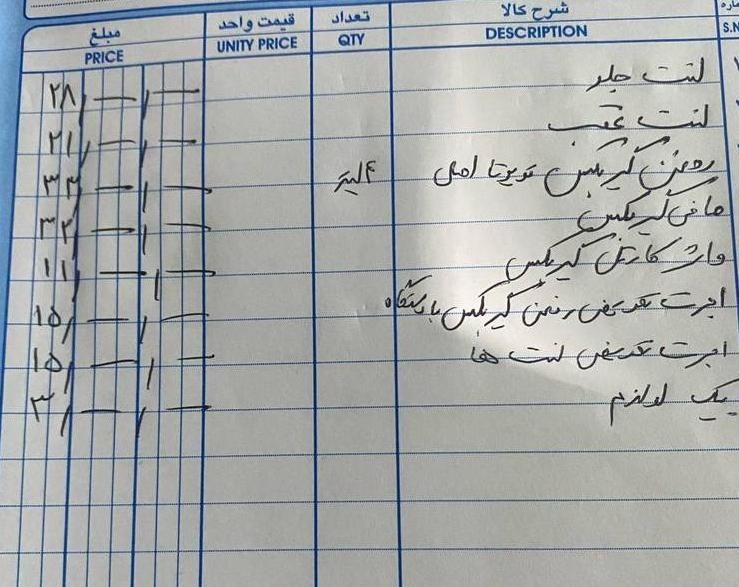 شرح کالا تعداد قیمت واحد مبلغ
S.N DESCRIPTION QTY UNITY PRICE PRICE
لنت جلو ۲۸/—/—
لنت عقب ۲۱/—/—
روغن گیربکس تویوتا اصلی ۴ لیتر ۳۳/—/—
صافی گیربکس ۳۲/—/—
واشر کارتل گیربکس ۱۱/—/—
اجرت تعویض روغن گیربکس با دستگاه ۱۵/—/—
اجرت تعویض لنت ها ۱۵/—/—
یک لوازم ۳/—/—